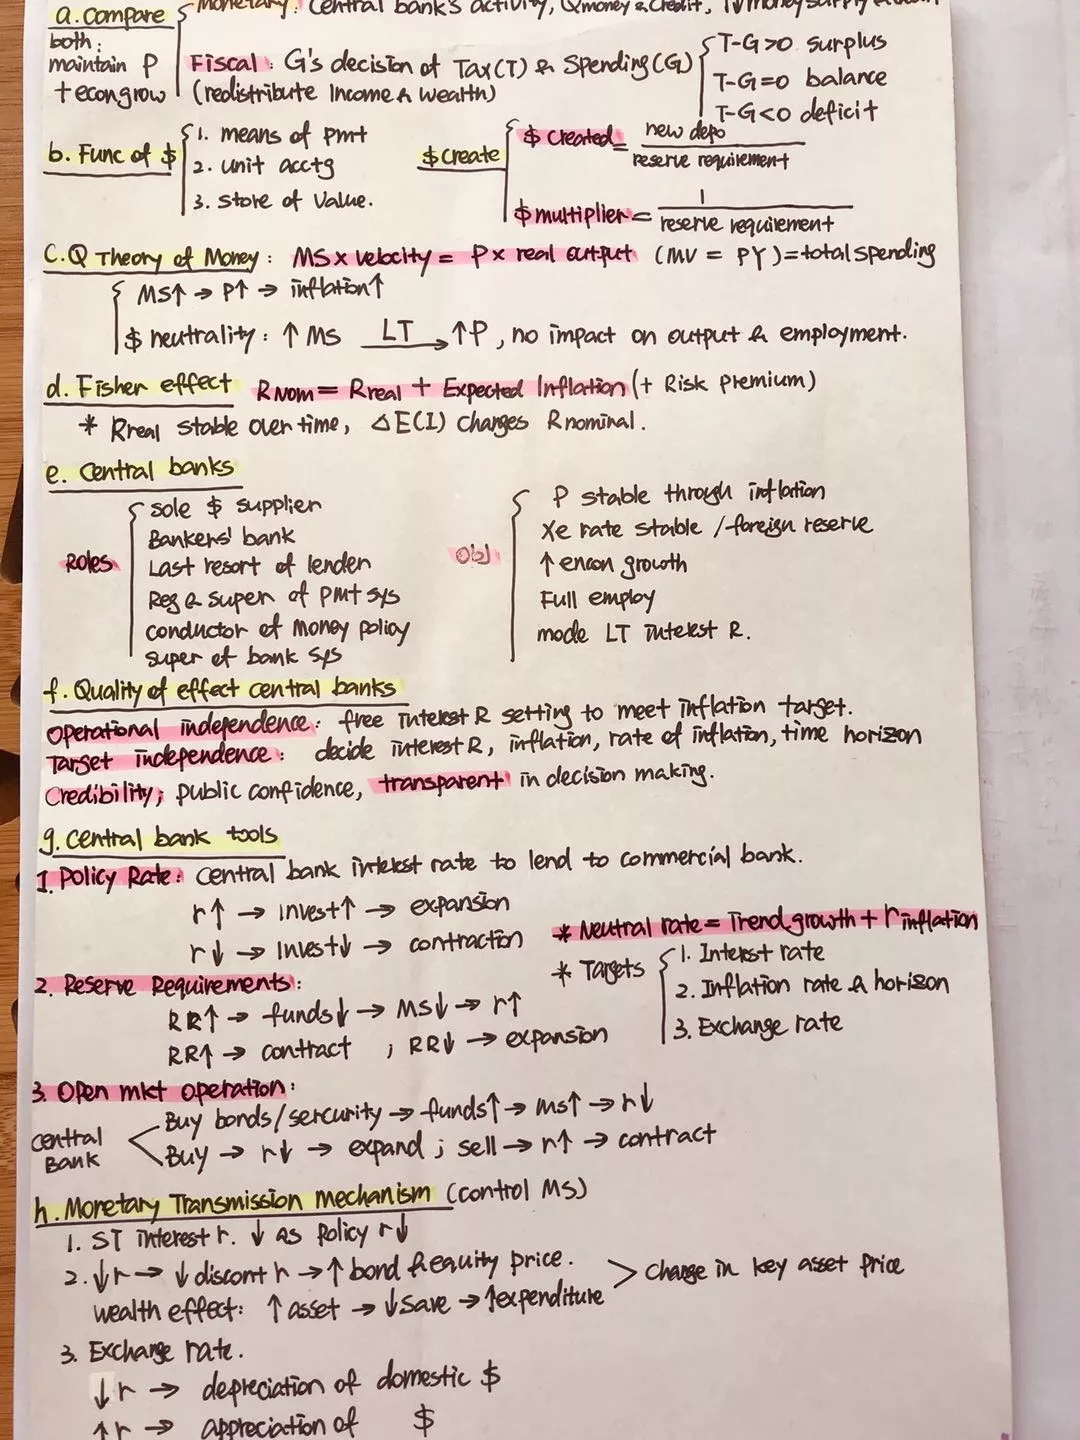 a. Compare
Monetary: Central bank's activity, Q money & Credit,
both:
maintain P
+ econ grow
Fiscal: G's decision of Tax(T) & Spending(G)
(redistribute Income & wealth)
T-G>0 surplus
T-G=0 balance
T-G<0 deficit
b. Func of $
1. means of pmt
2. unit acctg
3. store of value.
$ create
$ created = new depo / reserve requirement
$ multiplier = 1 / reserve requirement
C. Q Theory of Money: MS x velocity = P x real output (MV = PY) = total spending
MS↑ → P↑ → inflation↑
$ neutrality: ↑ MS LT → ↑P, no impact on output & employment.
d. Fisher effect RNOM = Rreal + Expected Inflation (+ Risk Premium)
* Rreal stable over time, ΔE(I) changes Rnominal.
e. Central banks
Roles
sole $ supplier
Bankers' bank
Last resort of lender
Reg & super of pmt sys
conductor of money policy
super of bank sys
Obj
P stable through inflation
Xe rate stable / foreign reserve
↑ encon growth
Full employ
mode LT interest R.
f. Quality of effect central banks
Operational independence: free interest R setting to meet inflation target.
Target independence: decide interest R, inflation, rate of inflation, time horizon
Credibility; public confidence, transparent in decision making.
g. Central bank tools
1. Policy Rate: Central bank interest rate to lend to commercial bank.
r↑ → Invest↑ → expansion
r↓ → Invest↓ → contraction
* Neutral rate = Trend growth + r inflation
* Targets
1. Interest rate
2. Inflation rate & horizon
3. Exchange rate
2. Reserve Requirements:
RR↑ → funds↓ → MS↓ → r↑
RR↑ → contract ; RR↓ → expansion
3. Open mkt operation:
Central Bank
Buy bonds/sercurity → funds↑ → MS↑ → r↓
Buy → r↓ → expand ; sell → r↑ → contract
h. Monetary Transmission mechanism (control MS)
1. ST interest r. ↓ as policy r↓
2. ↓r → ↓ discont r → ↑ bond & equity price.
wealth effect: ↑ asset → ↓ save → ↑expenditure
> change in key asset price
3. Exchange rate.
↓ r → depreciation of domestic $
↑ r → appreciation of $